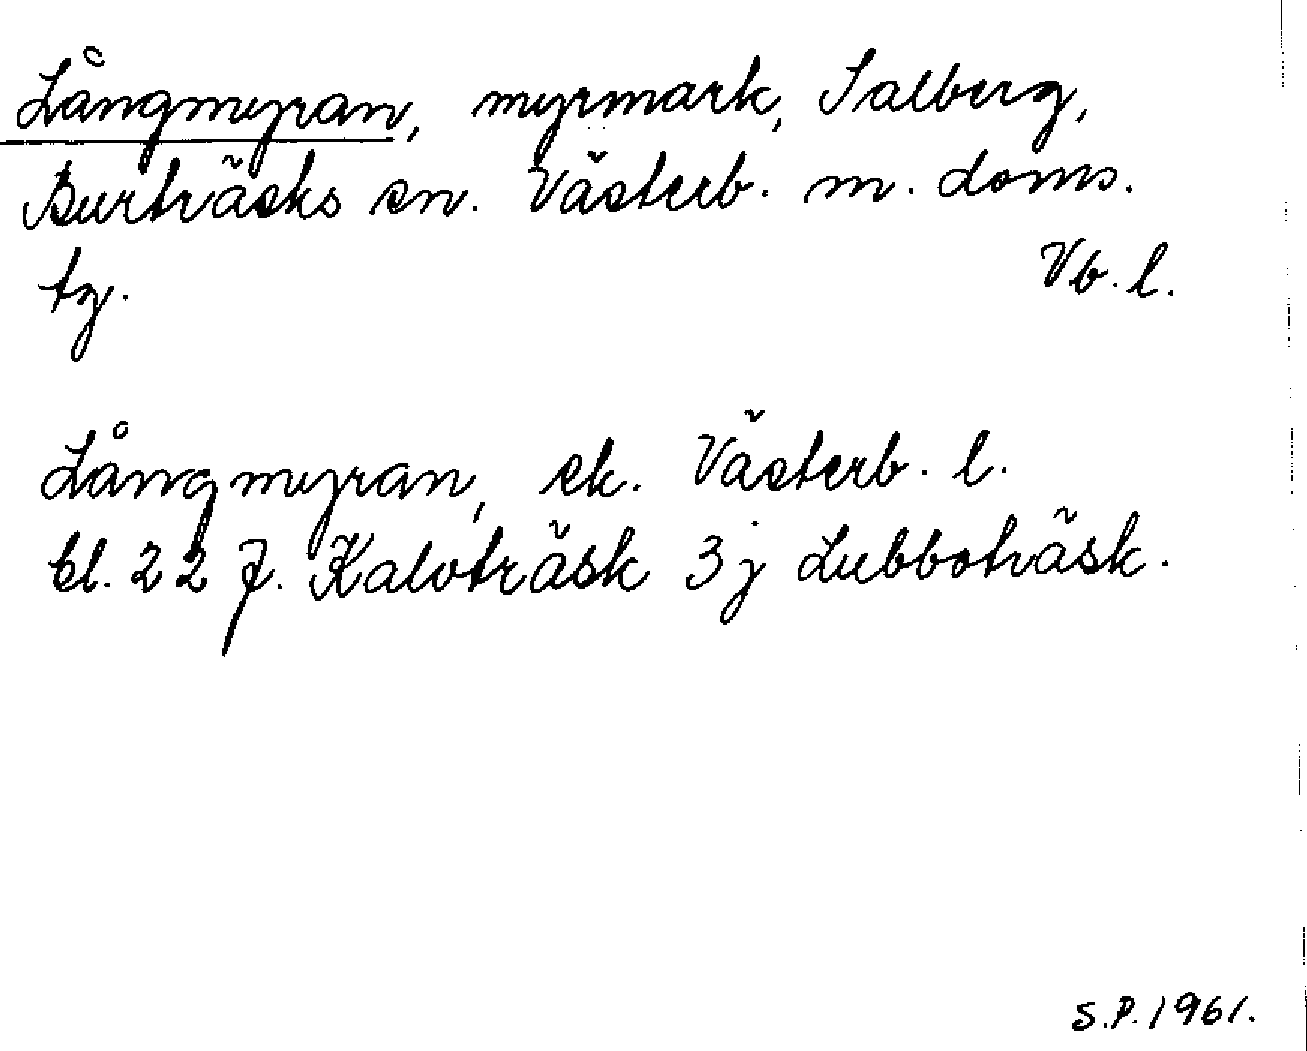 Långmyran, myrmark, Salberg,
Burträsks sn. Västerb. m. doms.
tg.
Vb. l.
Långmyran, ek. Västerb. l.
bl. 22 J. Kalvträsk 3j Lubboträsk.
S.P. 1961.